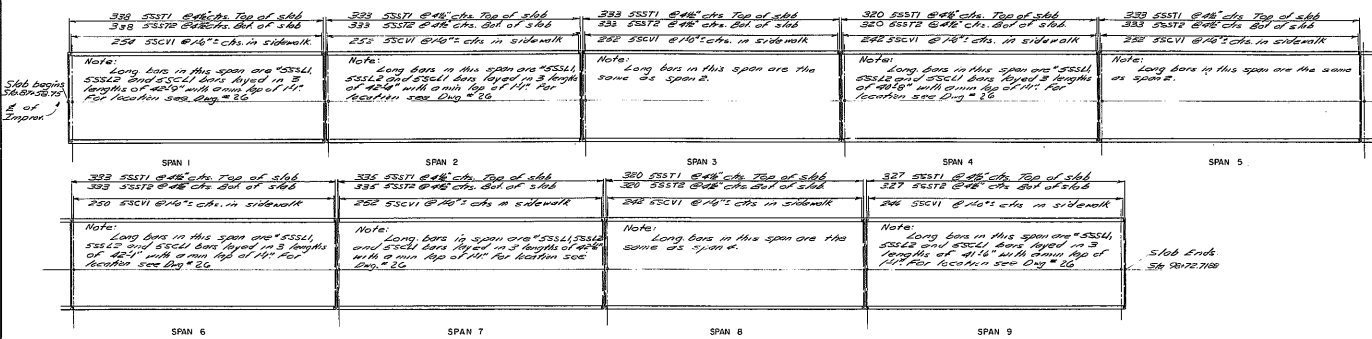 338 5SST1 @ 4½" ctrs. Top of slab
338 5SST2 @ 4½" ctrs. Bot. of slab
254 5SCV1 @ 1'-0"± ctrs. in sidewalk
Note:
Long bars in this span are #5SSL1,
5SSL2 and 5SCL1 bars layed in 3
lengths of 42'-9" with a min lap of 1'-1". For
For location see Dwg # 26
Slab begins
Sta. 87+58.75
℄ of
Improv.
SPAN 1
333 5SST1 @ 4½" ctrs. Top of slab
333 5SST2 @ 4½" ctrs. Bot. of slab
252 5SCV1 @ 1'-0"± ctrs. in sidewalk
Note:
Long bars in this span are #5SSL1,
5SSL2 and 5SCL1 bars layed in 3 lengths
of 42'-4" with a min lap of 1'-1". For
location see Dwg # 26
SPAN 2
333 5SST1 @ 4½" ctrs. Top of slab
333 5SST2 @ 4½" ctrs. Bot. of slab
252 5SCV1 @ 1'-0"± ctrs. in sidewalk
Note:
Long bars in this span are the
same as span 2.
SPAN 3
320 5SST1 @ 4½" ctrs. Top of slab
320 5SST2 @ 4½" ctrs. Bot of slab
242 5SCV1 @ 1'-0"± ctrs. in sidewalk
Note:
Long bars in this span are #5SSL1,
5SSL2 and 5SCL1 bars layed 3 lengths
of 40'-8" with a min lap of 1'-1". For
location see Dwg # 26
SPAN 4
333 5SST1 @ 4½" ctrs. Top of slab
333 5SST2 @ 4½" ctrs. Bot of slab
252 5SCV1 @ 1'-0"± ctrs. in sidewalk
Note:
Long bars in this span are the same
as span 2.
SPAN 5
333 5SST1 @ 4½" ctrs. Top of slab
333 5SST2 @ 4½" ctrs. Bot. of slab
250 5SCV1 @ 1'-0"± ctrs. in sidewalk
Note:
Long bars in this span are #5SSL1,
5SSL2 and 5SCL1 bars layed in 3 lengths
of 42'-1" with a min lap of 1'-1". For
location see Dwg # 26
SPAN 6
335 5SST1 @ 4½" ctrs. Top of slab
335 5SST2 @ 4½" ctrs. Bot. of slab
252 5SCV1 @ 1'-0"± ctrs in sidewalk
Note:
Long. bars in span are #5SSL1, 5SSL2
and 5SCL1 bars layed in 3 lengths of
with a min lap of 1'-1". For location see
Dwg. # 26
SPAN 7
320 5SST1 @ 4½" ctrs. Top of slab
320 5SST2 @ 4½" ctrs. Bot of slab
242 5SCV1 @ 1'-0"± ctrs in sidewalk
Note:
Long. bars in this span are the
same as span 4.
SPAN 8
327 5SST1 @ 4½" ctrs. Top of slab
327 5SST2 @ 4½" ctrs Bot of slab
246 5SCV1 @ 1'-0"± ctrs in sidewalk
Note:
Long bars in this span are #5SSL1,
5SSL2 and 5SCL1 bars layed in 3
lengths of 41'-6" with a min lap of
1'-1". For location see Dwg # 26
Slab Ends
Sta 98+72.7188
SPAN 9